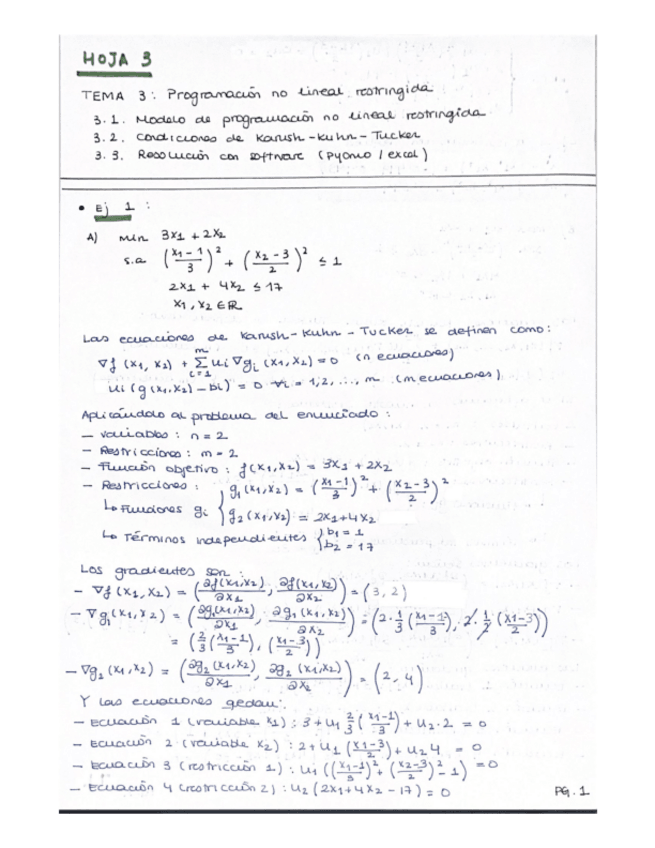 HOJA 3
TEMA 3: Programación no lineal restringida
3.1. Modelo de programación no lineal restringida
3.2. Condiciones de Karush-Kuhn-Tucker
3.3. Resolución con software (Pyomo / excel)
• Ej 1 :
A) Min 3x1 + 2x2
s.a ((x1-1)/3)² + ((x2-3)/2)² ≤ 1
2x1 + 4x2 ≤ 17
x1, x2 ∈ ℝ
Las ecuaciones de Karush-Kuhn-Tucker se definen como:
∇f(x1, x2) + Σ_{i=1}^{m} ui ∇gi(x1,x2) = 0 (n ecuaciones)
ui (g(x1,x2) - bi) = 0 ∀i = 1,2, ..., m (m ecuaciones)
Aplicándolo al problema del enunciado:
- Variables : n = 2
- Restricciones : m = 2
- Función objetivo : f(x1,x2) = 3x1 + 2x2
- Restricciones : g1(x1,x2) = ((x1-1)/3)² + ((x2-3)/2)²
↳ Funciones gi { g2(x1,x2) = 2x1+4x2
↳ Términos independientes { b1 = 1
b2 = 17
Los gradientes son :
- ∇f(x1, x2) = (∂f(x1,x2)/∂x1, ∂f(x1,x2)/∂x2) = (3, 2)
- ∇g1(x1,x2) = (∂g1(x1,x2)/∂x1, ∂g1(x1,x2)/∂x2) = (2·1/3((x1-1)/3), 2·1/2((x1-3)/2))
= (2/3((x1-1)/3), ((x1-3)/2))
- ∇g2(x1,x2) = (∂g2(x1,x2)/∂x1, ∂g2(x1,x2)/∂x2) = (2, 4)
Y las ecuaciones quedan:
- Ecuación 1 (variable x1) : 3 + u1 2/3((x1-1)/3) + u2·2 = 0
- Ecuación 2 (variable x2) : 2 + u1((x1-3)/2) + u2 4 = 0
- Ecuación 3 (restricción 1) : u1(((x1-1)/3)² + ((x2-3)/2)² - 1) = 0
- Ecuación 4 (restricción 2) : u2(2x1+4x2-17) = 0
PG. 1